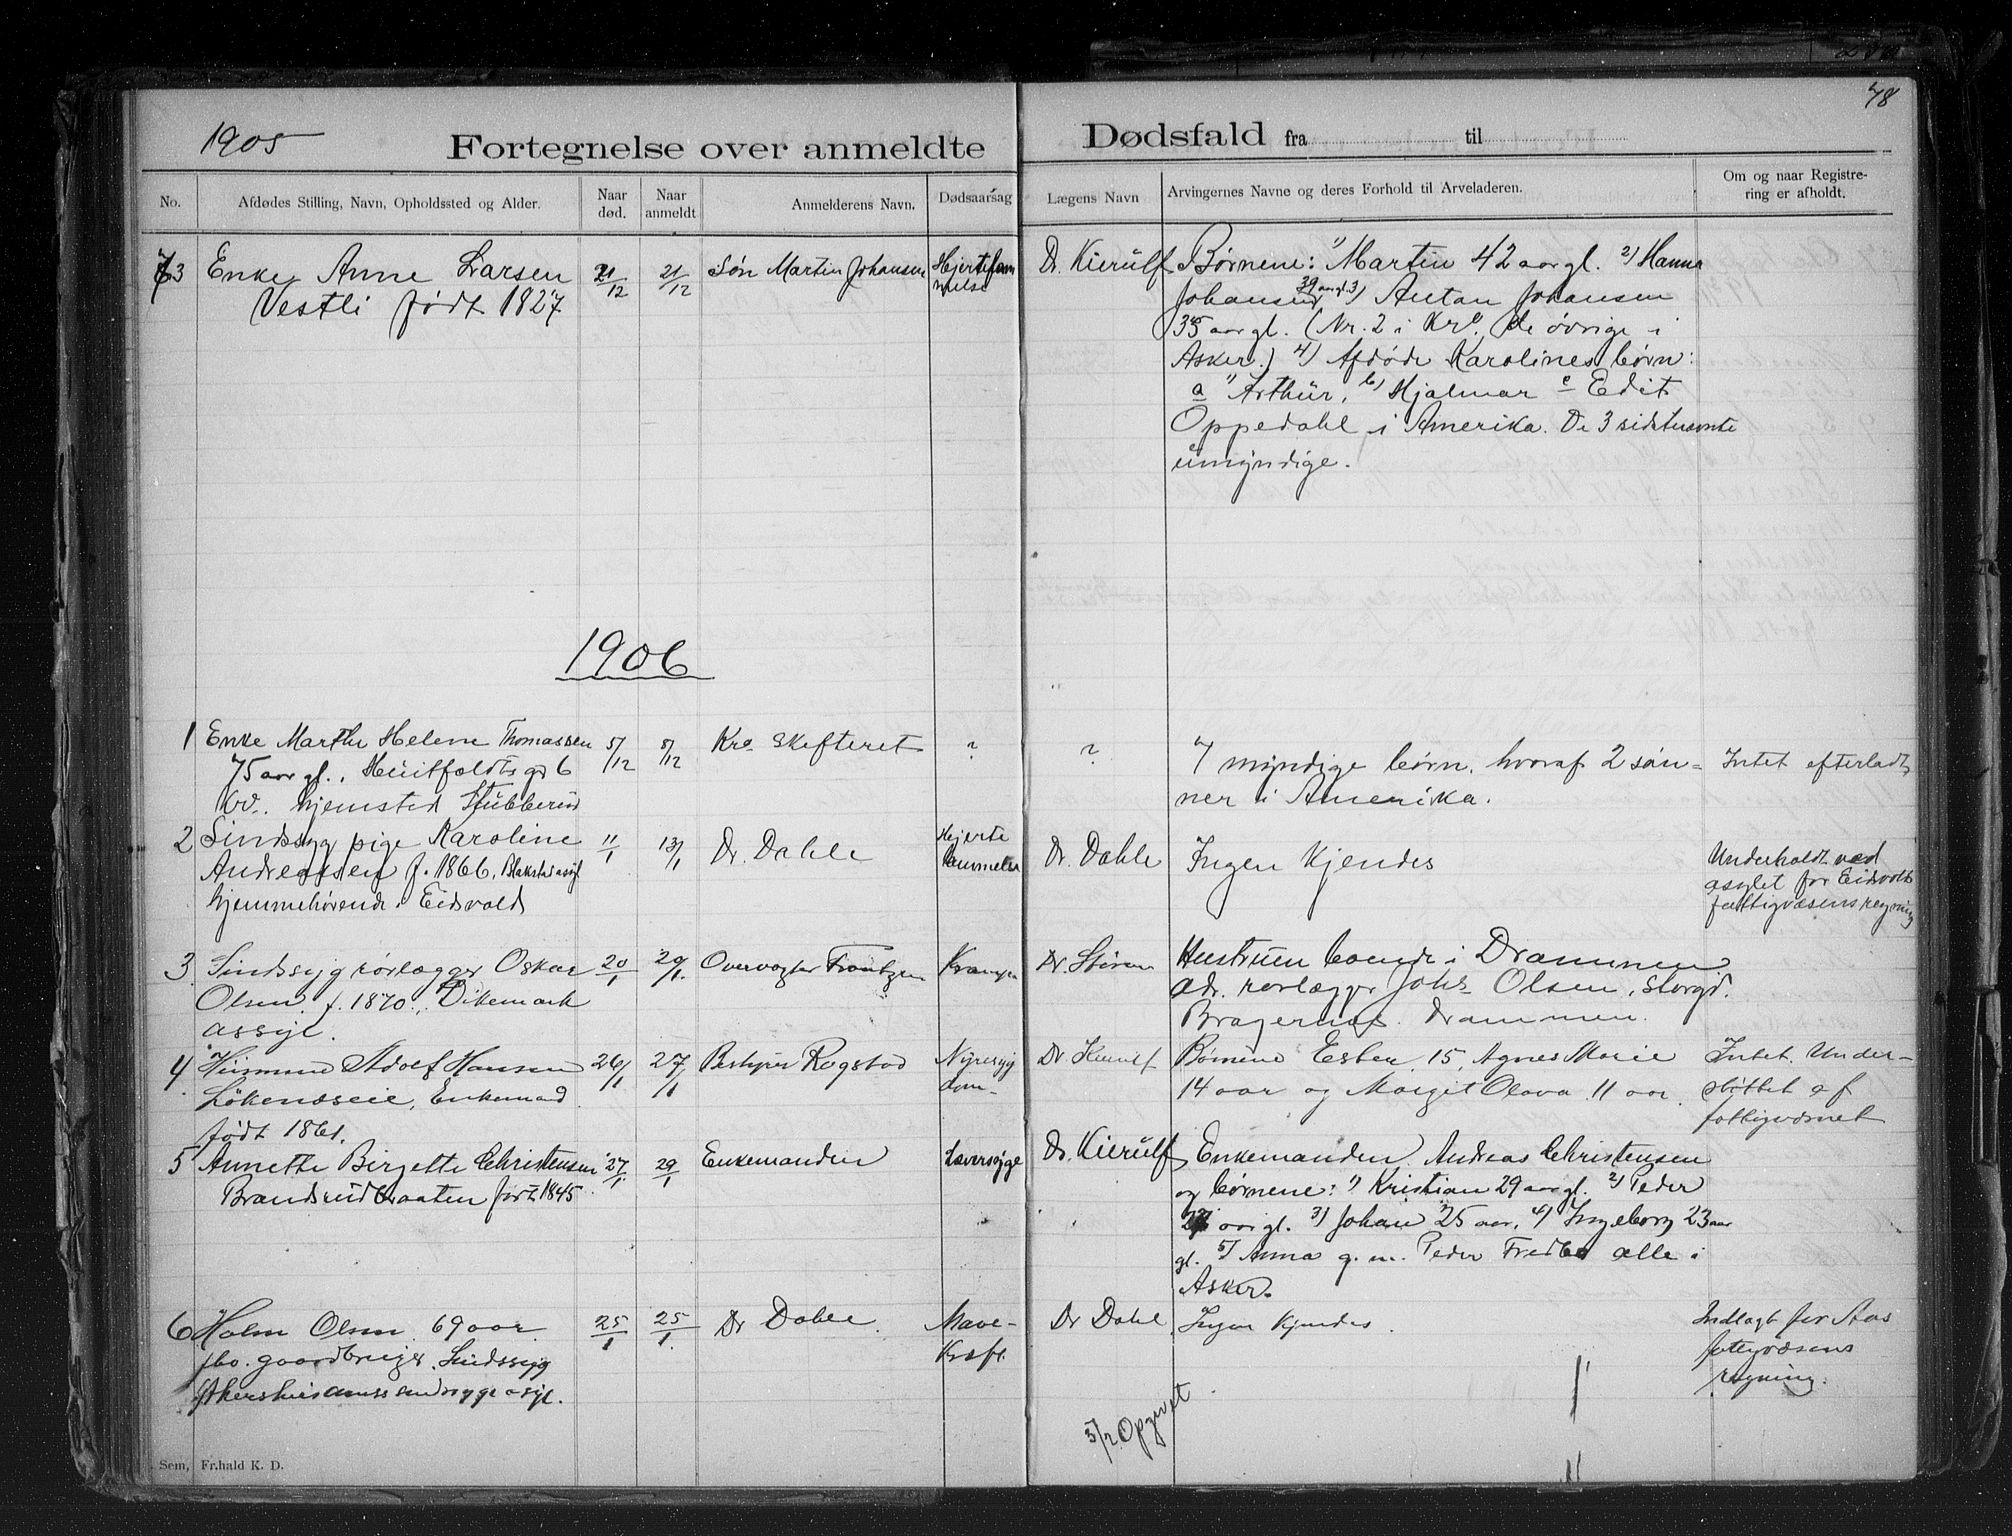 78
1905
Fortegnelse over anmeldte Dødsfald fra til
No.
Afdødes Stilling, Navn, Opholdssted og Alder.
Naar død.
Naar anmeldt
Anmelderens Navn.
Dødsaarsag
Lægens Navn
Arvingernes Navne og deres Forhold til Arveladeren.
Om og naar Registrering er afholdt.
73 Enke Anne Larsen
Vestli født 1827
21/12
21/12
Søn Martin Johansen
Hjertelam
melse
Dr. Kierulf
Børnene: 1) Martin 42 aar gl. 2) Hanna
Johansen 39 aar gl. 3) Antan Johansen
35 aar gl. (Nr. 2 i Kra. de øvrige i
Asker.) 4) Afdøde Karolines børn:
a) Arthur, b) Hjalmar c Edit
Oppedahl i Amerika. De 3 sidstnævnte
umyndige.
1906
1 Enke Marthe Helene Thomassen
75 aar gl., Huitfeldts gd 6
hjemsted Stubberud
5/12
8/12
Kra Skifteret
?
?
7 myndige børn, hvoraf 2 søn=
ner i Amerika.
Intet efterladt
2 Sindssyg pige Karoline
Andreassen f. 1866, Blakstad asyl
hjemmehørende i Eidsvold
11/1
13/1
Dr. Dahle
Hjerte
lammelse
Dr. Dahle
Ingen Kjendes
Underholdt ved
asylet for Eidsvolds
fattigvæsens regning
3 Sindssyg rørlægger Oskar
Olsen f. 1870, Dikemark
assyl.
20/1
20/1.
Overvogter Frantzen
Krampe
Dr. Støren
Hustruen boende i Drammen
adr. rørlægger Johs Olsen, Storgd.
Bragernæs. Drammen.
4 Husmand Adolf Hansen
Løkenæseie, Enkemand
født 1861.
26/1
27/1
Bestyrer Rogstad
Nyresyg
dom
Dr. Kierulf
Børnene Ester 15, Agnes Marie
14 aar og Margit Olava 11 aar.
Intet. Under-
støttet af
fattigvæsnet
5 Annette Birgette Christensen
Brandsrudbraaten født 1845
27/1.
29/1
Enkemanden
Leversyge
Dr. Kierulf
Enkemanden Andreas Christensen
og børnene: 1) Kristian 29 aar gl. 2) Peder
27 aar gl. 3) Johan 25 aar, 4) Ingeborg 23 aar
gl. 5) Anna g. m. Peder Fredbo alle i
Asker.
6 Holm Olsen 69 aar.
fhv. gaardbruger. Sindssyg
Akershus amts sindssygeasyl.
25/1
25/1.
Dr Dahle.
Mave-
Kræft.
Dr Dahl
Ingen Kjendes.
Indlagt for Aas
fatigvæsens
regning.
5/2 Opgivet
Sem, Fr.hald K. D.